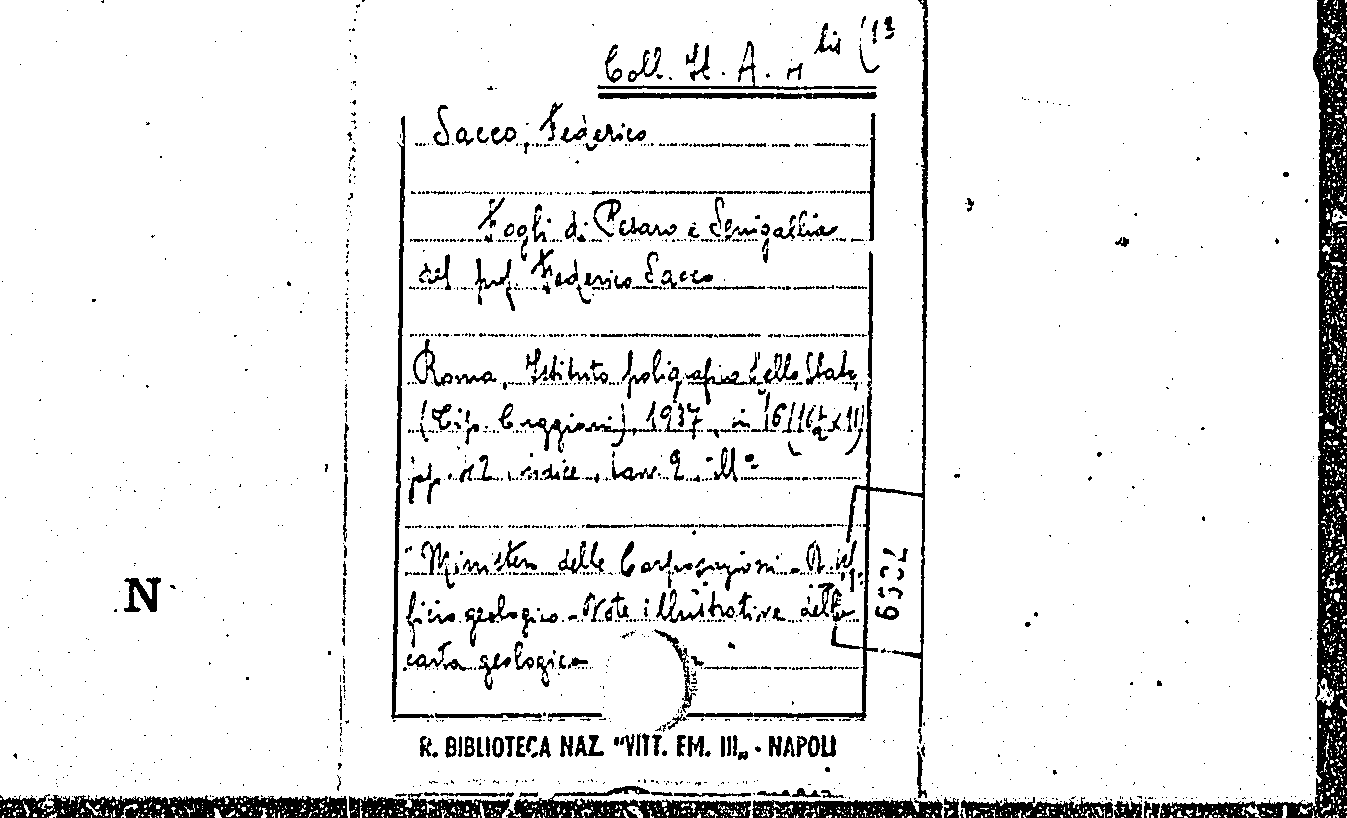 Coll. It. A. bis (13
Sacco, Federico
Fogli di Pesaro e Senigallia
del prof. Federico Sacco
Roma, Istituto poligrafico dello Stato
(Tip. Cuggiani), 1937, in 16
pp. 72, indice, tav. 2. Mº
Ministero delle Corporazioni - R. Uf-
ficio geologico - Note illustrative della
carta geologica
6332
N
R. BIBLIOTECA NAZ. "VITT. EM. III„ - NAPOLI